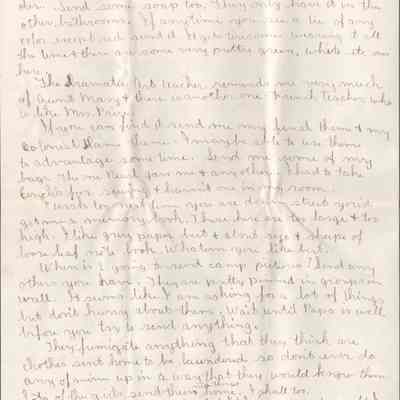 der. Send some soap too. They only have it in the
other bathrooms. If anytime you see a tie of any
color except red send it. It gets tiresome wearing it all
the time & there are some very pretty green, white etc ones
here.
The Dramatic Art teacher reminds me very much
of Aunt Mary & there is another one French teacher who
is like Mrs. Price.
If you can find it send me my final theme & my
Colonial Dame theme. I may be able to use them
to advantage some time. Send me some of my
bags. The one Nead gave me & any others. I had to take
for sewing & haven't one in my room.
I wish too next time you are down street you'd
get me a memory book. Those here are too large & too
high. I like grey paper but & about size & shape of
loose leaf note book. Whatever you like but.
When is going to send camp pictures? Send any
others you have. They are pretty pinned in groups on
wall. It seems like I am asking for a lot of things
but don't hurry about them. Wait until Papa is well
before you try to send anything.
They fumigate anything that they think are
clothes sent home to be laundered so don't ever do
any of mine up in a way that they would know them.
Lots of the girls send theirs home. I shall too.